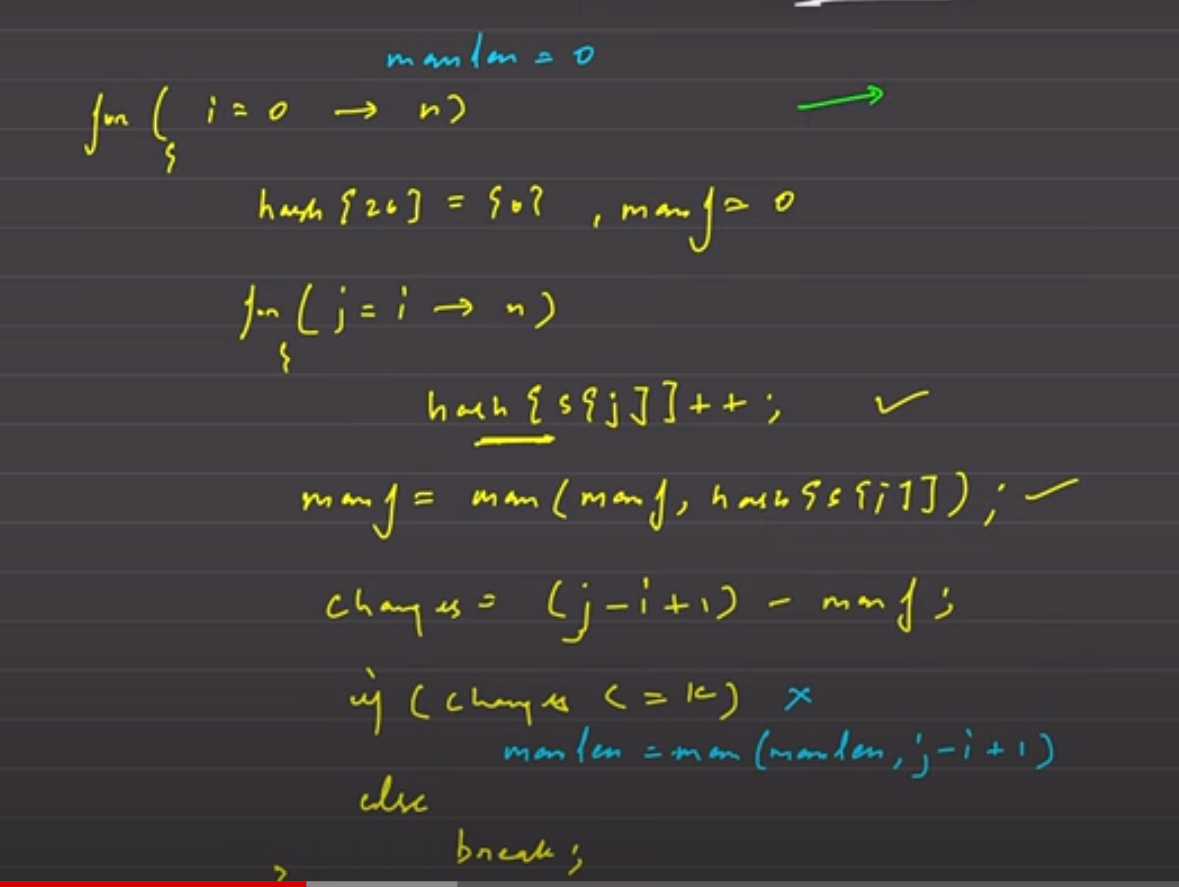 maxlen = 0
for ( i = 0 → n)
{
hash [26] = {0} , maxf = 0
for ( j = i → n)
{
hash [ s[j] ]++ ; ✓
maxf = max ( maxf, hash[s[j]] ) ; ✓
changes = (j-i+1) - maxf ;
if ( changes <= k) ×
maxlen = max (maxlen, j-i+1)
else
break ;
}